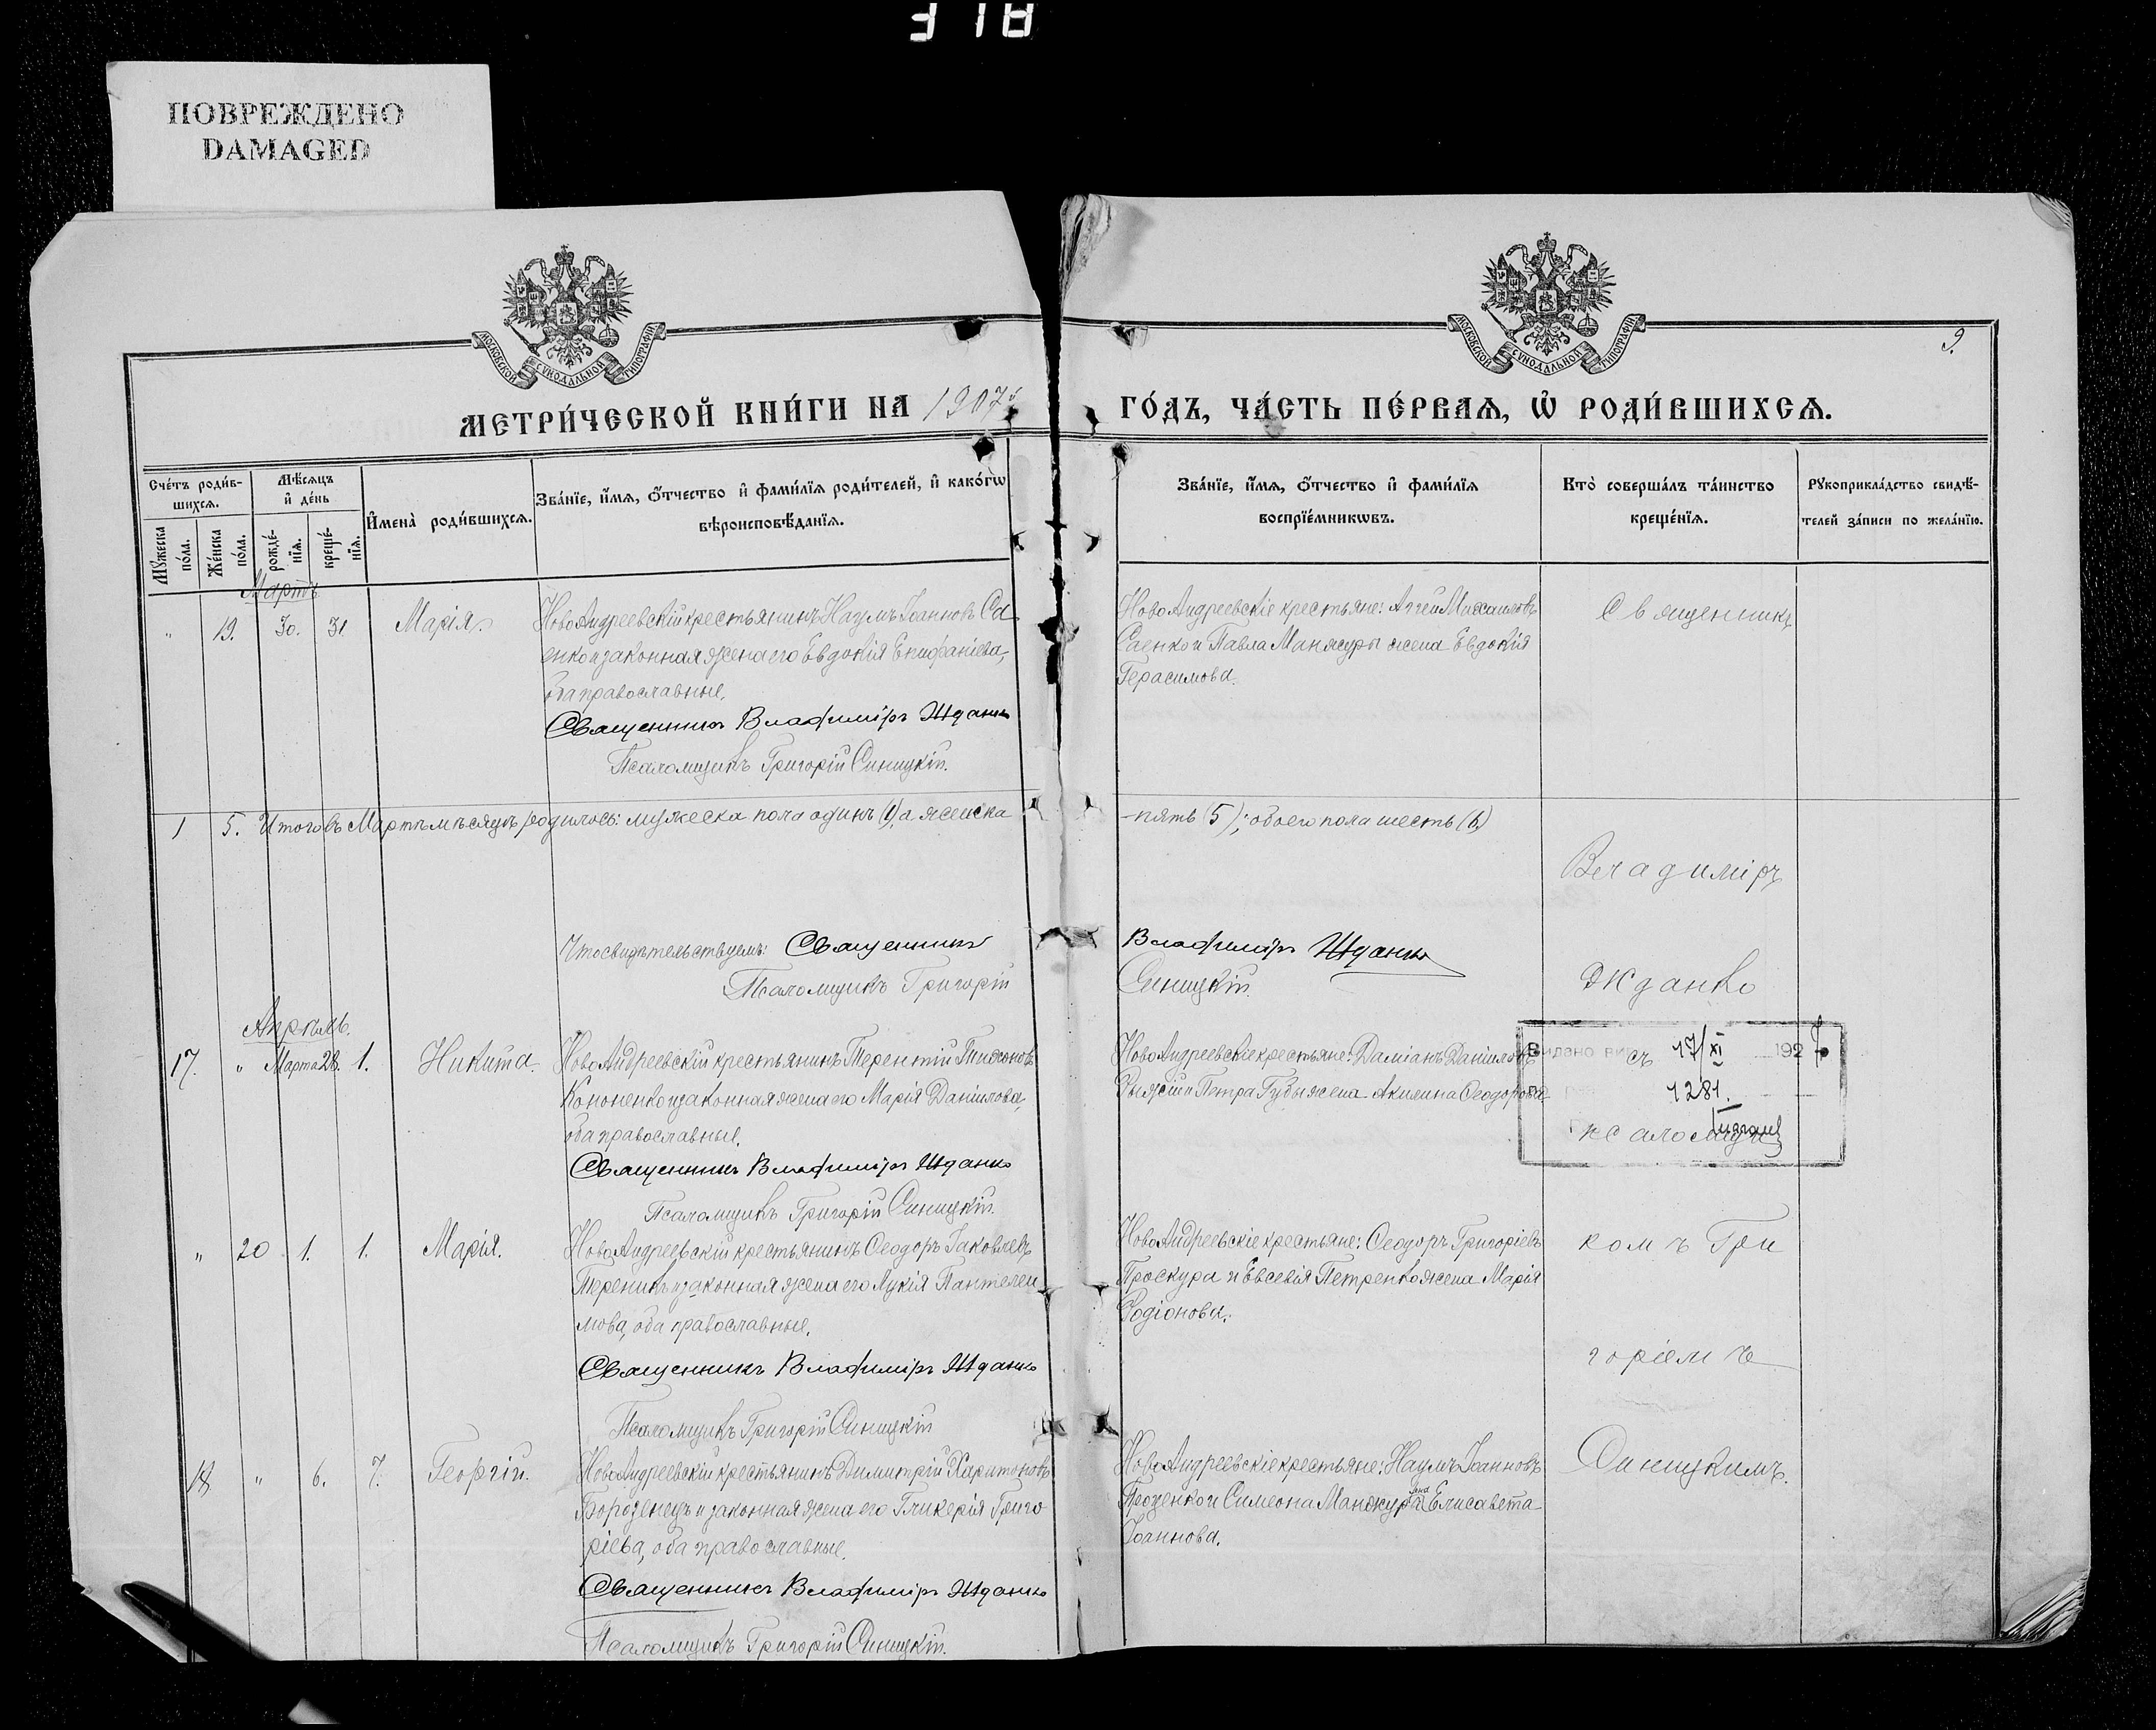 318
ПОВРЕЖДЕНО
DAMAGED
МОСКОВСКОЙ СѴНОДАЛЬНОЙ ТИПОГРАФІИ
МОСКОВСКОЙ СѴНОДАЛЬНОЙ ТИПОГРАФІИ
9.
МЕТРИ́ЧЕСКОЙ КНИ́ГИ НА 1907й ГО́ДЪ, ЧА́СТЬ ПЕ́РВАЯ, Ѡ҆ РОДИ́ВШИХСЯ.
Сче́тъ роди́в-
шихся.
Мꙋжеска
по́ла.
Же́нска
по́ла.
Мѣ́сяцъ
и҆ де́нь
рожде́-
нїя.
креще́-
нїя.
И҆мена̀ роди́вшихся.
Зва́нїе, и҆́мя, ѻ҆́тчество и҆ фами́лїя роди́телей, и҆ како́гѡ
вѣроисповѣ́данїя.
Зва́нїе, и҆́мя, ѻ҆́тчество и҆ фами́лїя
воспрїе́мникѡвъ.
Кто̀ соверша́лъ та́инство
креще́нїя.
Рꙋкоприкла́дство свидѣ́-
телей за́писи по жела́нїю.
Мартъ
" 19. 30. 31. Марія.
НовоАндреевскій крестьянинъ Наумъ Іоанновъ Са
енко и законная жена его Евдокія Епифаніева,
оба православные.
Священникъ Владиміръ Жданко
Псаломщикъ Григорій Синицкій.
НовоАндреевскіе крестьяне: Аггей Михаиловъ
Саенко и Павла Манжуры жена Евдокія
Герасимова.
Священникъ
1 5. Итого въ Мартѣ мѣсяцѣ родилось: мужеска пола одинъ (1), а женска
пять (5); обоего пола шесть (6)
Владиміръ
Что свидѣтельствуемъ: Священникъ Владиміръ Жданко
Псаломщикъ Григорій Синицкій.
Жданко
Апрѣль.
17. " Марта 28. 1. Никита.
НовоАндреевскій крестьянинъ Терентій Тихоновъ
Кононенко и законная жена его Марія Даніилова,
оба православные.
Священникъ Владиміръ Жданко
Псаломщикъ Григорій Синицкій.
НовоАндреевскіе крестьяне: Даміанъ Даніиловъ
Рыжій и Петра Губы жена Акилина Ѳеодорова
Видано
съ
17/XI 1927 р
1281.
псаломщи
" 20 1. 1. Марія.
НовоАндреевскій крестьянинъ Ѳеодоръ Іаковлевъ
Тереникъ и законная жена его Лукія Пантелеи
мова, оба православные.
Священникъ Владиміръ Жданко
Псаломщикъ Григорій Синицкій
НовоАндреевскіе крестьяне: Ѳеодоръ Григоріевъ
Проскура и Евсевія Петренко жена Марія
Родіонова.
комъ Гри
горіемъ
18. " 6. 7. Георгій.
НовоАндреевскій крестьянинъ Димитрій Харитоновъ
Борозенецъ и законная жена его Гликерія Григо
ріева, оба православные.
Священникъ Владиміръ Жданко
Псаломщикъ Григорій Синицкій.
НовоАндреевскіе крестьяне: Наумъ Іоанновъ
Проценко и Симеона Манжуры жена Елисавета
Іоаннова.
Синицкимъ.